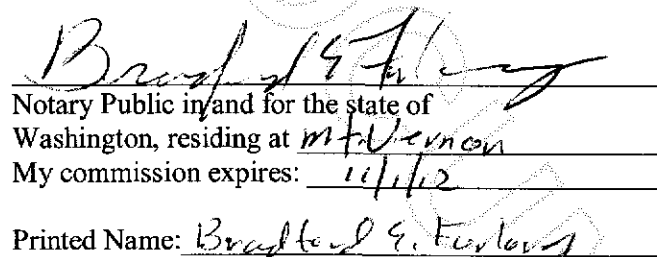 Bradford E. Furlong
Notary Public in and for the state of
Washington, residing at Mt. Vernon
My commission expires: 11/1/12
Printed Name: Bradford E. Furlong